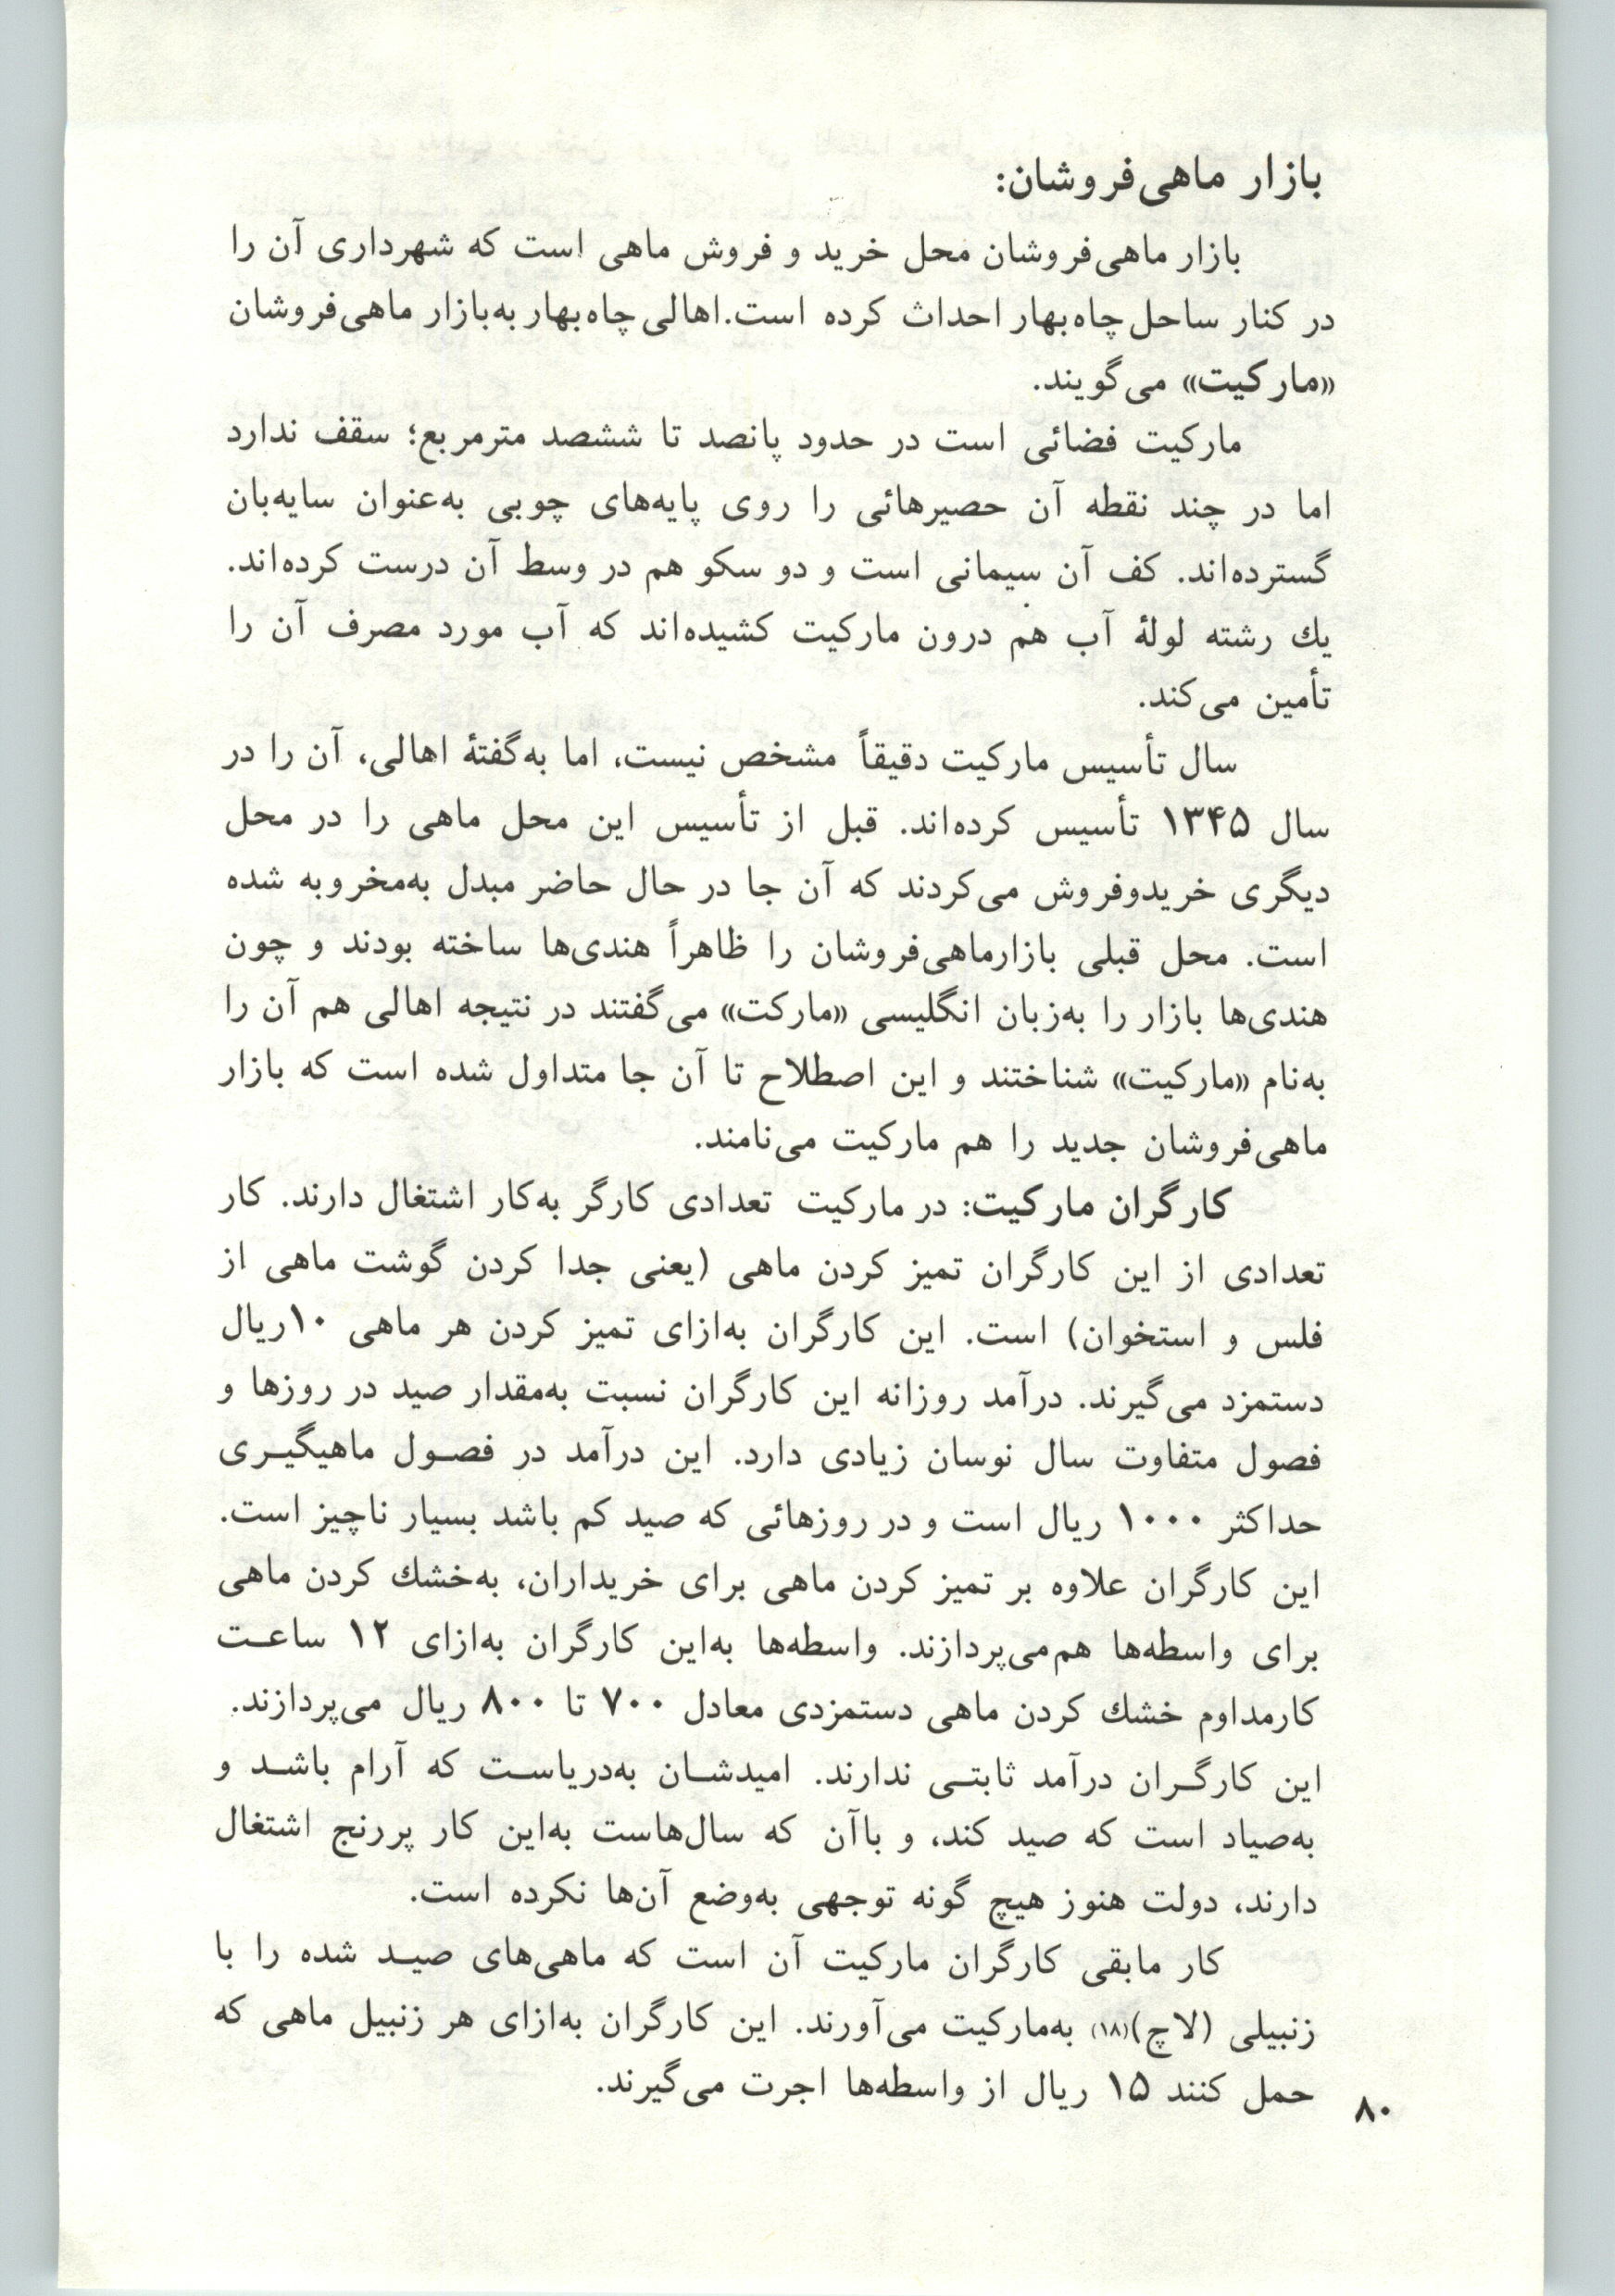 بازار ماهی‌فروشان:
بازار ماهی‌فروشان محل خرید و فروش ماهی است که شهرداری آن را
در کنار ساحل چاه‌بهار احداث کرده است. اهالی چاه‌بهار به‌بازار ماهی‌فروشان
«مارکیت» می‌گویند.
مارکیت فضائی است در حدود پانصد تا ششصد مترمربع؛ سقف ندارد
اما در چند نقطه آن حصیرهائی را روی پایه‌های چوبی به‌عنوان سایه‌بان
گسترده‌اند. کف آن سیمانی است و دو سکو هم در وسط آن درست کرده‌اند.
یك رشته لولهٔ آب هم درون مارکیت کشیده‌اند که آب مورد مصرف آن را
تأمین می‌کند.
سال تأسیس مارکیت دقیقاً مشخص نیست، اما به‌گفتهٔ اهالی، آن را در
سال ۱۳۴۵ تأسیس کرده‌اند. قبل از تأسیس این محل ماهی را در محل
دیگری خریدوفروش می‌کردند که آن جا در حال حاضر مبدل به‌مخروبه شده
است. محل قبلی بازارماهی‌فروشان را ظاهراً هندی‌ها ساخته بودند و چون
هندی‌ها بازار را به‌زبان انگلیسی «مارکت» می‌گفتند در نتیجه اهالی هم آن را
به‌نام «مارکیت» شناختند و این اصطلاح تا آن جا متداول شده است که بازار
ماهی‌فروشان جدید را هم مارکیت می‌نامند.
کارگران مارکیت: در مارکیت تعدادی کارگر به‌کار اشتغال دارند. کار
تعدادی از این کارگران تمیز کردن ماهی (یعنی جدا کردن گوشت ماهی از
فلس و استخوان) است. این کارگران به‌ازای تمیز کردن هر ماهی ۱۰ریال
دستمزد می‌گیرند. درآمد روزانه این کارگران نسبت به‌مقدار صید در روزها و
فصول متفاوت سال نوسان زیادی دارد. این درآمد در فصـول ماهیگیـری
حداکثر ۱۰۰۰ ریال است و در روزهائی که صید کم باشد بسیار ناچیز است.
این کارگران علاوه بر تمیز کردن ماهی برای خریداران، به‌خشك کردن ماهی
برای واسطه‌ها هم‌می‌پردازند. واسطه‌ها به‌این کارگران به‌ازای ۱۲ ساعـت
کارمداوم خشك کردن ماهی دستمزدی معادل ۷۰۰ تا ۸۰۰ ریال می‌پردازند.
این کارگـران درآمد ثابتـی ندارند. امیدشـان به‌دریاسـت که آرام باشـد و
به‌صیاد است که صید کند، و باآن که سال‌هاست به‌این کار پررنج اشتغال
دارند، دولت هنوز هیچ گونه توجهی به‌وضع آن‌ها نکرده است.
کار مابقی کارگران مارکیت آن است که ماهی‌های صیـد شده را با
زنبیلی (لاچ)(۱۸) به‌مارکیت می‌آورند. این کارگران به‌ازای هر زنبیل ماهی که
حمل کنند ۱۵ ریال از واسطه‌ها اجرت می‌گیرند.
۸۰